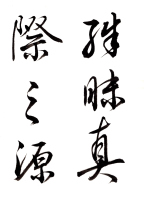 殊昧真
際之源